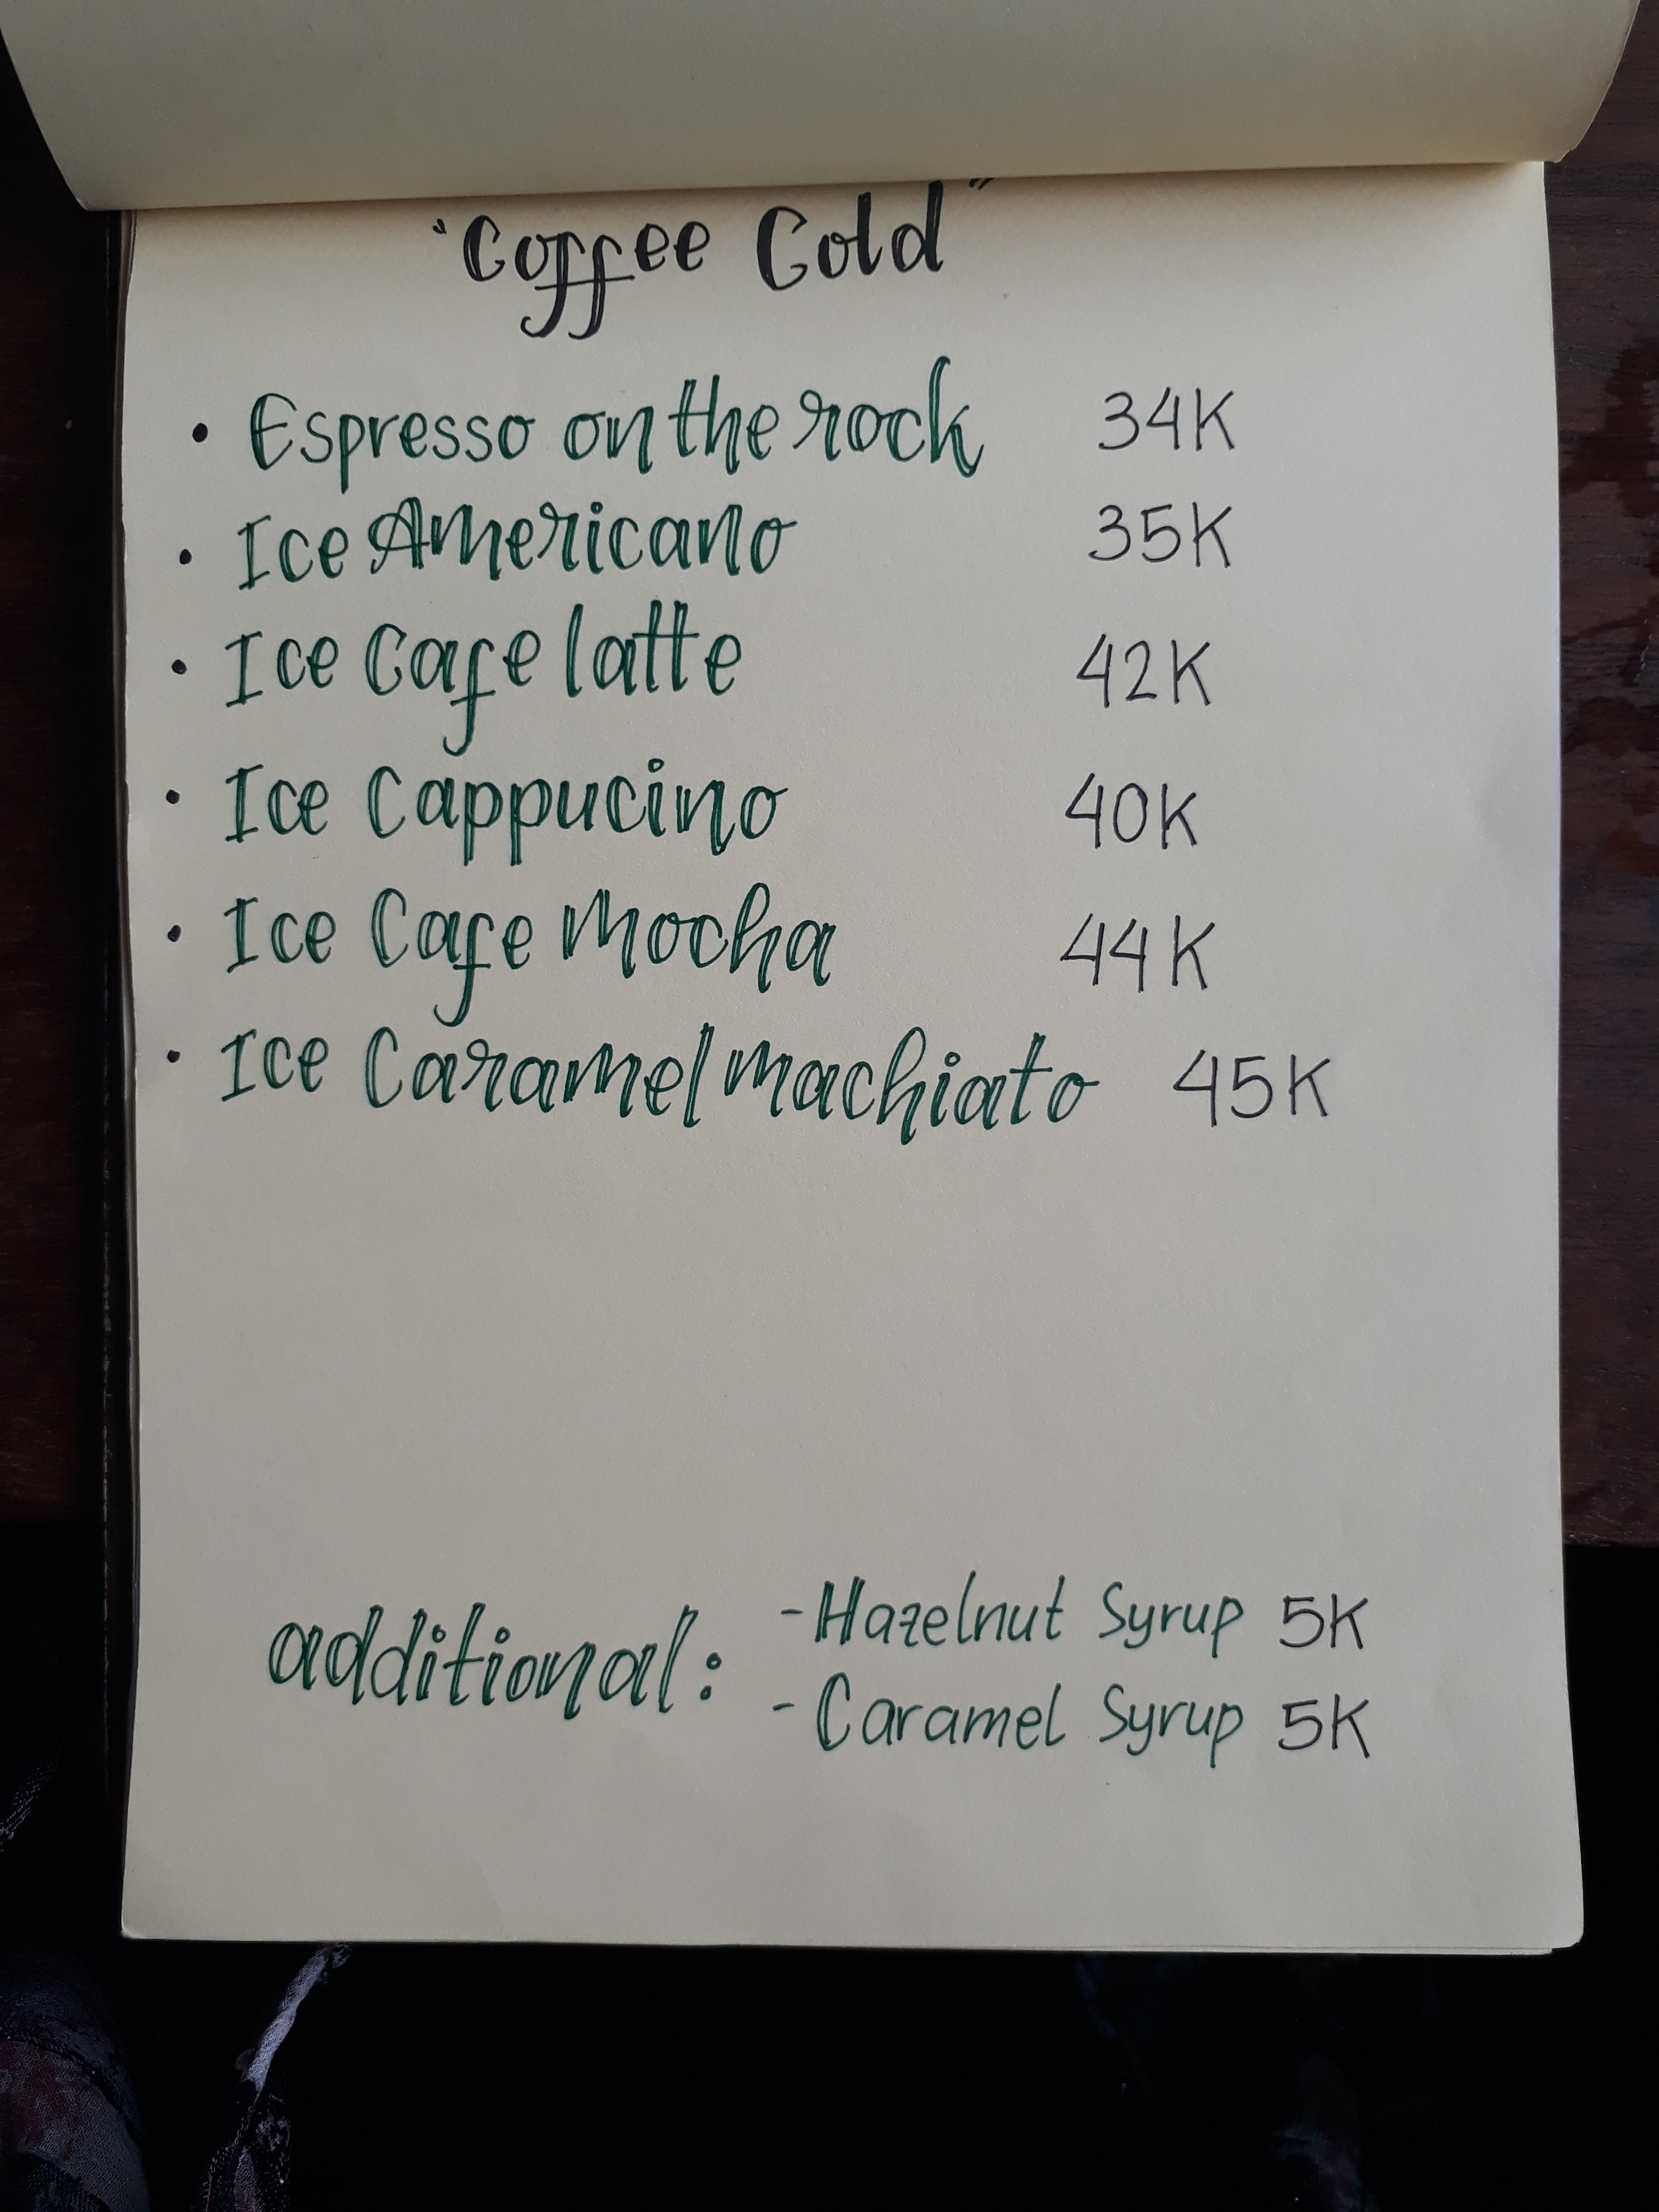 "Coffee Cold"
• Espresso on the rock 34K
• Ice Americano 35K
• Ice Cafe latte 42K
• Ice Cappucino 40K
• Ice Cafe Mocha 44K
• Ice Caramel Machiato 45K
additional: - Hazelnut Syrup 5K
- Caramel Syrup 5K